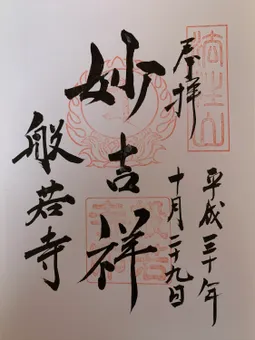 法性山
奉拝
平成三十年
十月二十九日
妙吉祥
般若寺